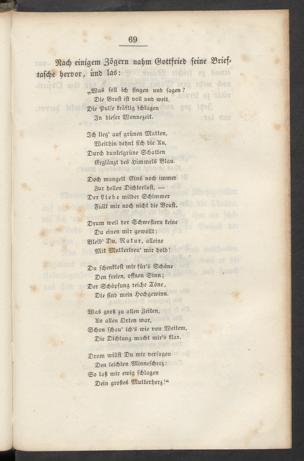 69
Nach einigem Zögern nahm Gottfried seine Brief-
tasche hervor, und las:
„Was soll ich singen und sagen?
Die Brust ist voll und weit,
Die Pulse kräftig schlagen
In dieser Wonnezeit.
Ich lieg' auf grünen Matten,
Weithin dehnt sich die Au,
Durch dunkelgrüne Schatten
Erglänzt des Himmels Blau.
Doch mangelt Eins noch immer
Zur hellen Dichterlust, —
Der Liebe milder Schimmer
Füllt mir noch nicht die Brust.
Drum weil der Schwestern keine
Du einen mir gewollt;
Bleib' Du, Natur, alleine
Mit Muttertreu' mir hold!
Du schenktest mir für's Schöne
Den freien, offnen Sinn;
Der Schöpfung reiche Töne,
Die sind mein Hochgewinn.
Was groß zu allen Zeiten,
An allen Orten war,
Schon schau' ich's wie von Weitem,
Die Dichtung macht mir's klar.
Drum willst Du mir versagen
Den leichten Minnescherz;
So laß mir ewig schlagen
Dein großes Mutterherz!"